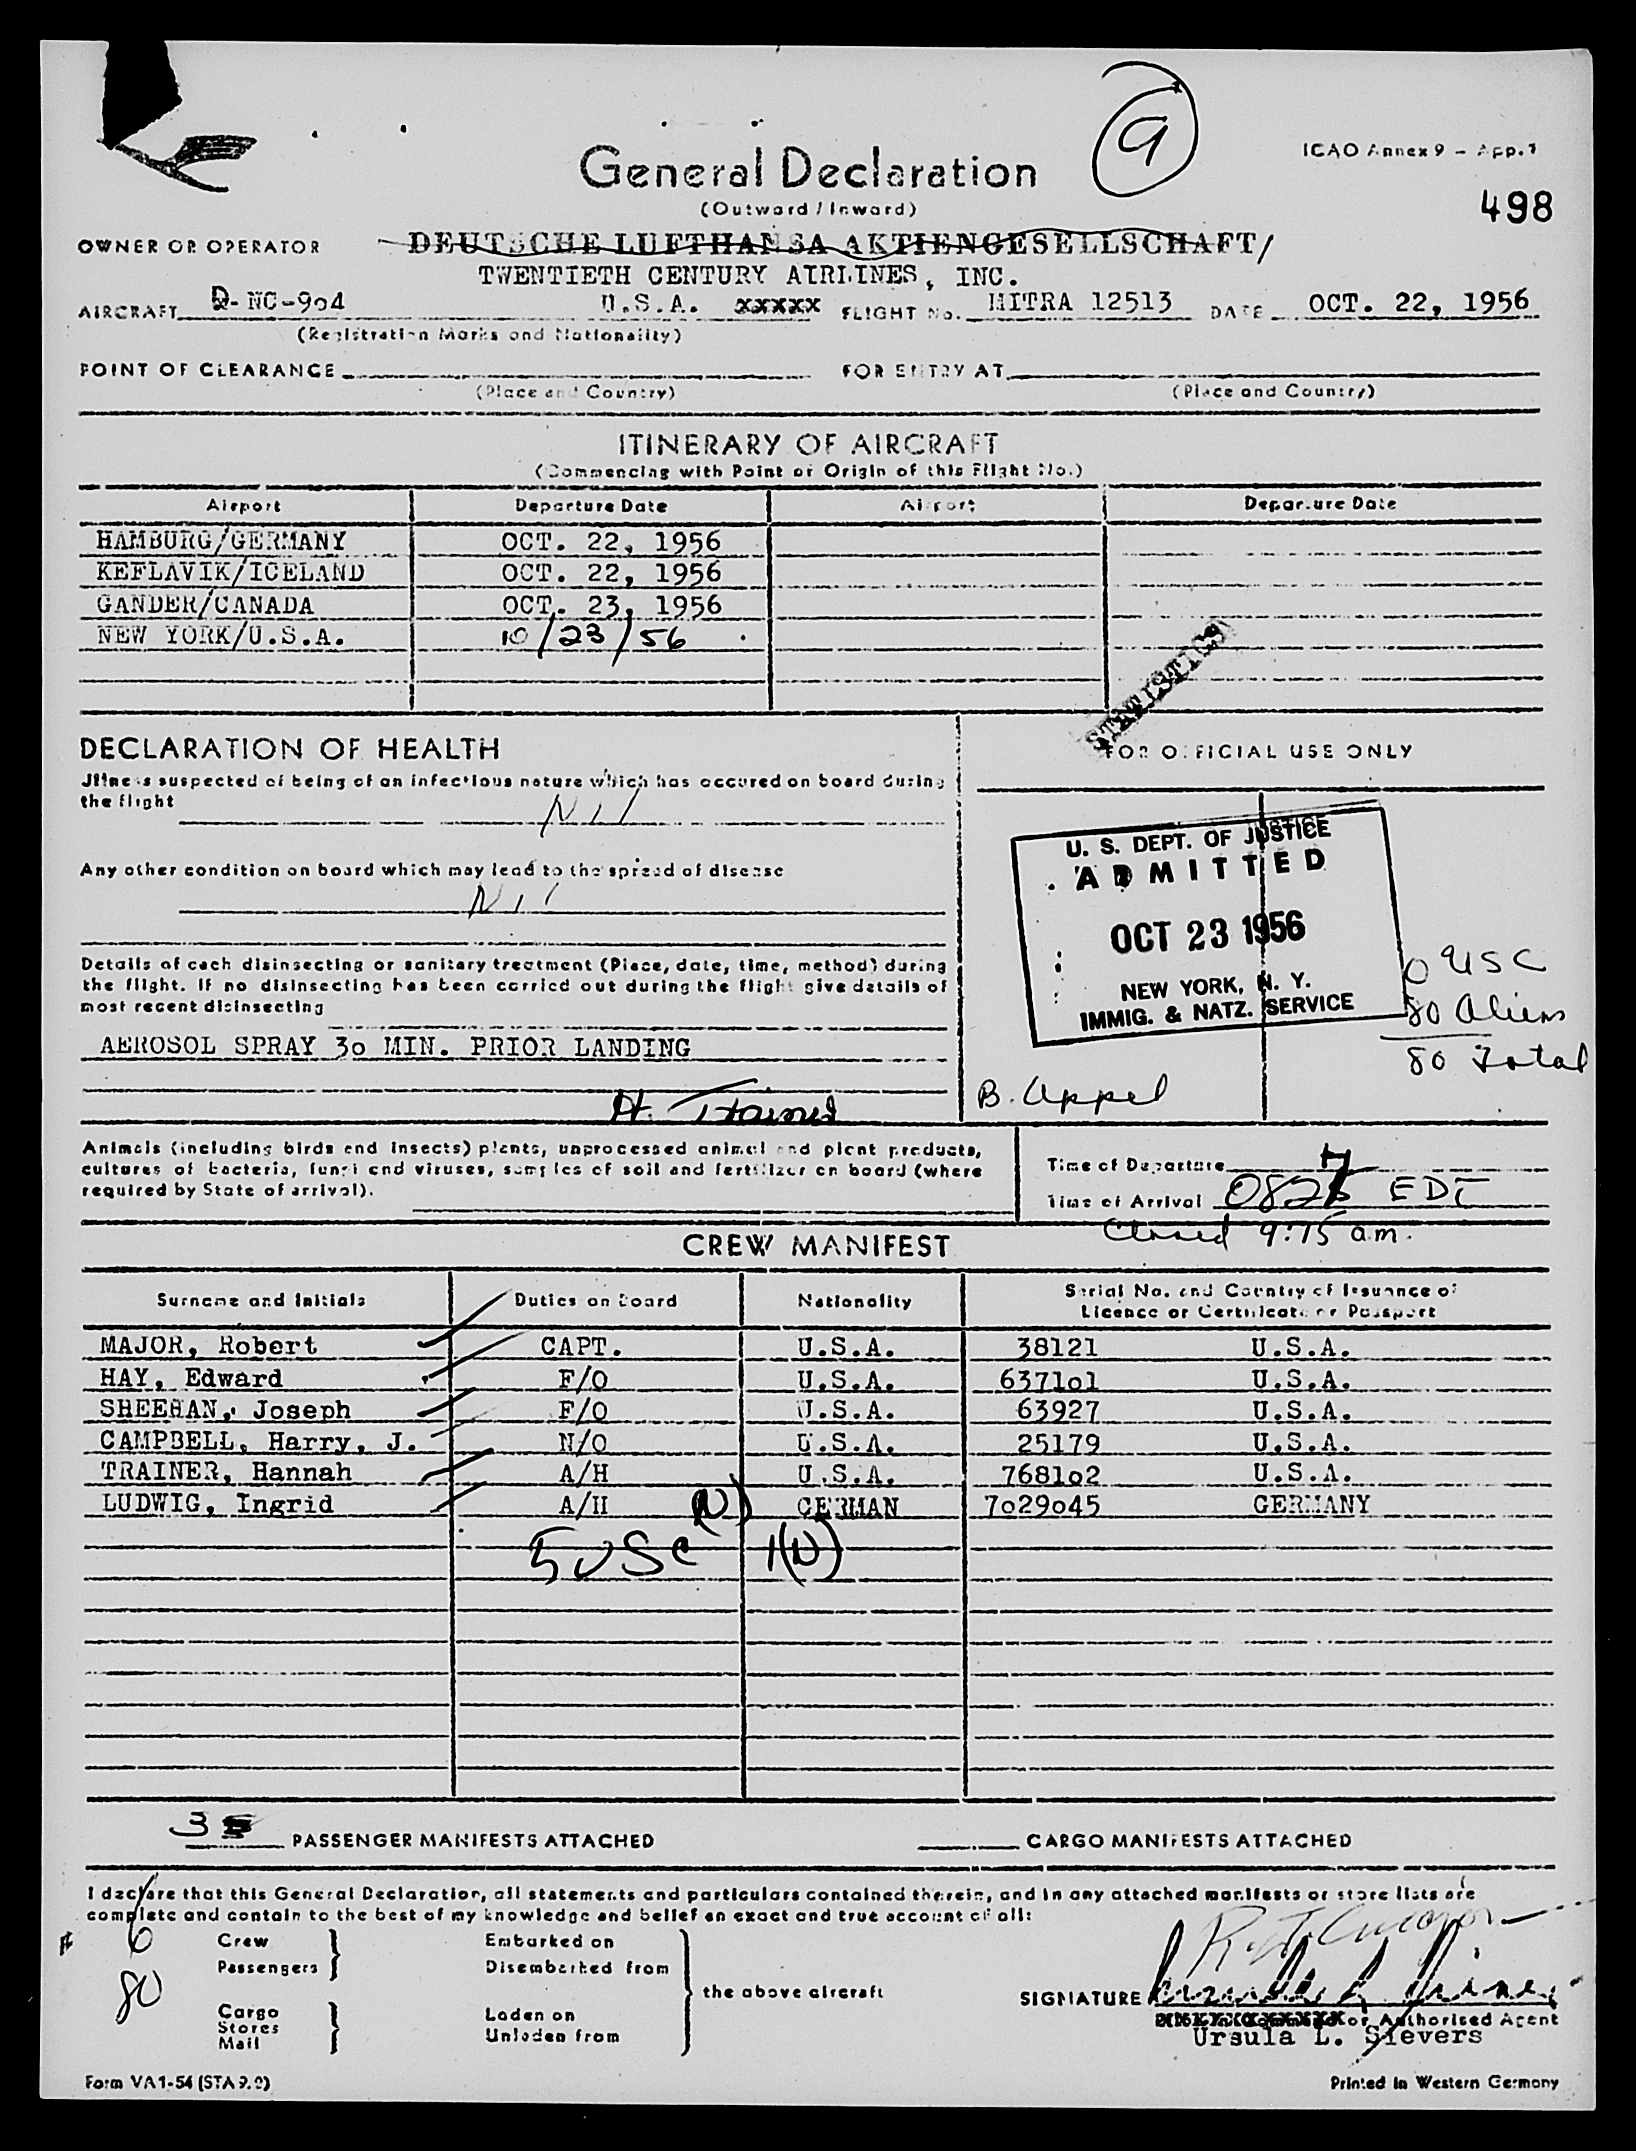 9
ICAO Annex 9 – App. 1
General Declaration
498
(Outward / Inward)
OWNER OR OPERATOR DEUTSCHE LUFTHANSA AKTIENGESELLSCHAFT/
TWENTIETH CENTURY AIRLINES, INC.
AIRCRAFT D- NC-9o4 U.S.A. xxxxx FLIGHT No. MITRA 12513 DATE OCT. 22, 1956
(Registration Marks and Nationality)
POINT OF CLEARANCE FOR ENTRY AT
(Place and Country) (Place and Country)
ITINERARY OF AIRCRAFT
(Commencing with Point of Origin of this Flight No.)
Airport Departure Date Airport Departure Date
HAMBURG/GERMANY OCT. 22, 1956
KEFLAVIK/ICELAND OCT. 22, 1956
GANDER/CANADA OCT. 23, 1956
NEW YORK/U.S.A. 10/23/56
STATISTICS
DECLARATION OF HEALTH
FOR OFFICIAL USE ONLY
Jllness suspected of being of an infectious nature which has occured on board during
the flight Nil
Any other condition on board which may lead to the spread of disease
Nil
U. S. DEPT. OF JUSTICE
ADMITTED
OCT 23 1956
NEW YORK, N. Y.
IMMIG. & NATZ. SERVICE
0 USC
80 Aliens
80 Total
Details of each disinsecting or sanitary treatment (Place, date, time, method) during
the flight. If no disinsecting has been carried out during the flight give details of
most recent disinsecting
AEROSOL SPRAY 3o MIN. PRIOR LANDING
B. Appel
Animals (including birds and insects) plants, unprocessed animal and plant products,
cultures of bacteria, fungi and viruses, samples of soil and fertilizer on board (where
required by State of arrival).
Time of Departure
Time of Arrival 082 EDT
Closed 9:15 am.
CREW MANIFEST
Surname and Initials Duties on Board Nationality Serial No. and Country of Issuance of
Licence or Certificate or Passport
MAJOR, Robert CAPT. U.S.A. 38121 U.S.A.
HAY, Edward F/O U.S.A. 6371o1 U.S.A.
SHEEHAN, Joseph F/O U.S.A. 63927 U.S.A.
CAMPBELL, Harry, J. N/O U.S.A. 25179 U.S.A.
TRAINER, Hannah A/H U.S.A. 7681o2 U.S.A.
LUDWIG, Ingrid A/H (N) GERMAN 7o29o45 GERMANY
5 USC 1(N)
3 PASSENGER MANIFESTS ATTACHED CARGO MANIFESTS ATTACHED
I declare that this General Declaration, all statements and particulars contained therein, and in any attached manifests or store lists are
complete and contain to the best of my knowledge and belief an exact and true account of all:
6 Crew Embarked on
80 Passengers Disembarked from
the above aircraft
Cargo Laden on
Stores Unladen from
Mail
SIGNATURE
or Authorised Agent
Ursula L. Sievers
Form VA1-54 (STA 9.0)
Printed in Western Germany